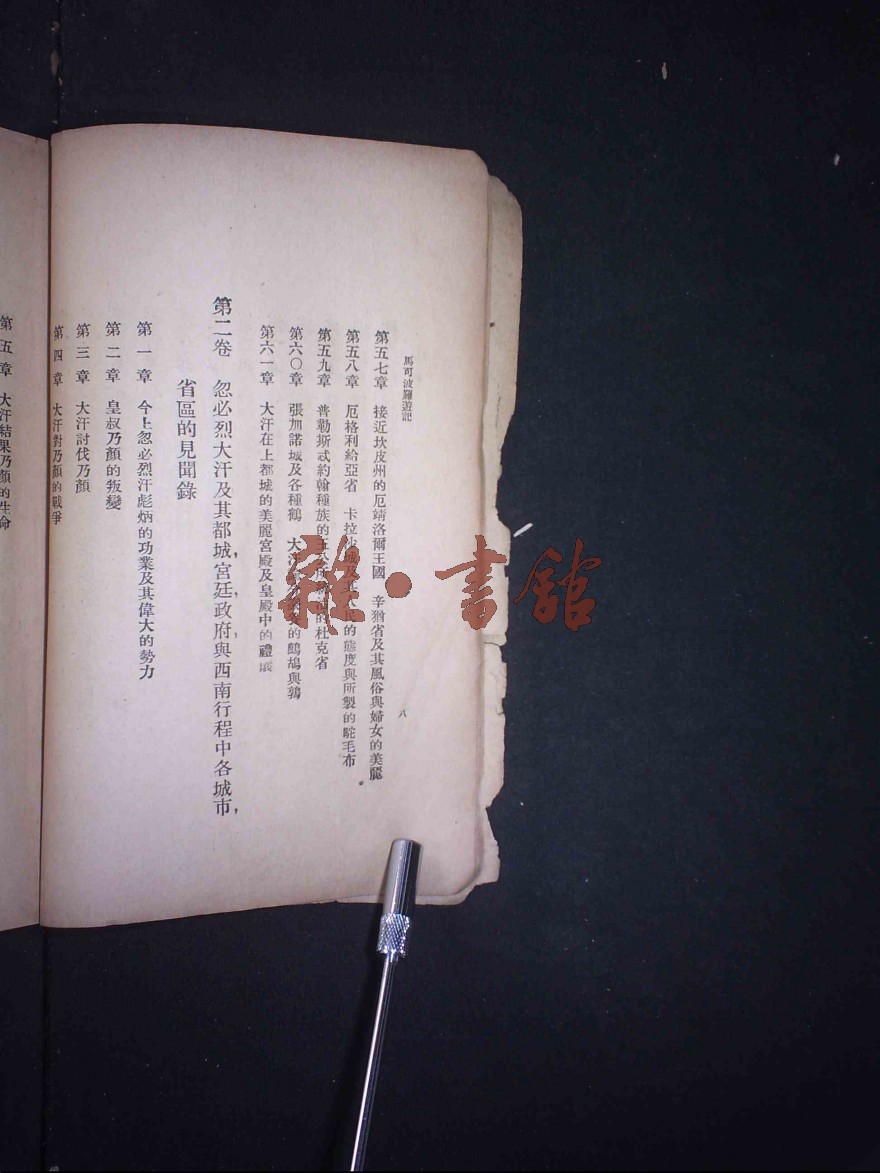 馬可波羅遊記
八
第五七章 接近坎皮州的厄靖洛爾王國 辛猶省及其風俗與婦女的美麗
第五八章 厄格利給亞省 卡拉沙 及其 的態度與所製的駝毛布
第五九章 普勒斯忒約翰種族的 的杜克省
第六〇章 張加諾城及各種鶴 大汗 的鷓鴣與鶉
第六一章 大汗在上都城的美麗宮殿及皇殿中的禮
第二卷 忽必烈大汗及其都城,宮廷,政府,與西南行程中各城市,
省區的見聞錄
第一章 今上忽必烈汗彪炳的功業及其偉大的勢力
第二章 皇叔乃顏的叛變
第三章 大汗討伐乃顏
第四章 大汗對乃顏的戰爭
第五章 大汗結果乃顏的生命
雜·書館